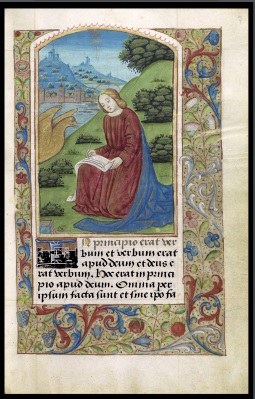 In principio erat ver
bum et verbum erat
apud deum et deus e
rat verbum. Hoc erat in princi
pio apud deum. Omnia per
ipsum facta sunt et sine ipo fa